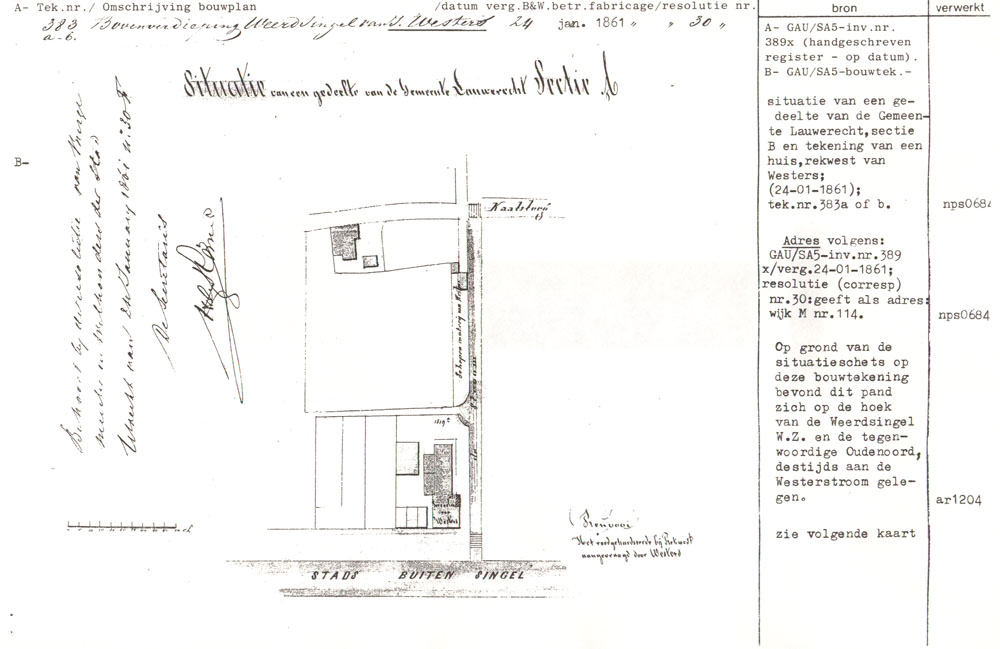 A- Tek.nr./ Omschrijving bouwplan /datum verg.B&W.betr.fabricage/resolutie nr.
383 Bovenverdieping Weerdsingel van S. Westers 24 jan. 1861 " " 30 "
a-b.
Situatie van een gedeelte van de Gemeente Lauwerecht Sectie A
B-
Behoort bij de resolutie van Burge
meester en wethouders der Stad
Utrecht van 24 January 1861 n: 30
De Secretaris
Kaatsbrug
1119
Westers
STADS BUITEN SINGEL
Renvooi
Het roodgekarteerde bij Rekwest
aangevraagd door Westers
bron
A- GAU/SA5-inv.nr.
389x (handgeschreven
register - op datum).
B- GAU/SA5-bouwtek.-
situatie van een ge-
deelte van de Gemeen-
te Lauwerecht,sectie
B en tekening van een
huis,rekwest van
Westers;
(24-01-1861);
tek.nr.383a of b.
Adres volgens:
GAU/SA5-inv.nr.389
x/verg.24-01-1861;
resolutie (corresp)
nr.30:geeft als adres:
wijk M nr.114.
Op grond van de
situatieschets op
deze bouwtekening
bevond dit pand
zich op de hoek
van de Weerdsingel
W.Z. en de tegen-
woordige Oudenoord,
destijds aan de
Westerstroom gele-
gen.
zie volgende kaart
verwerkt
nps0684
nps0684
ar1204